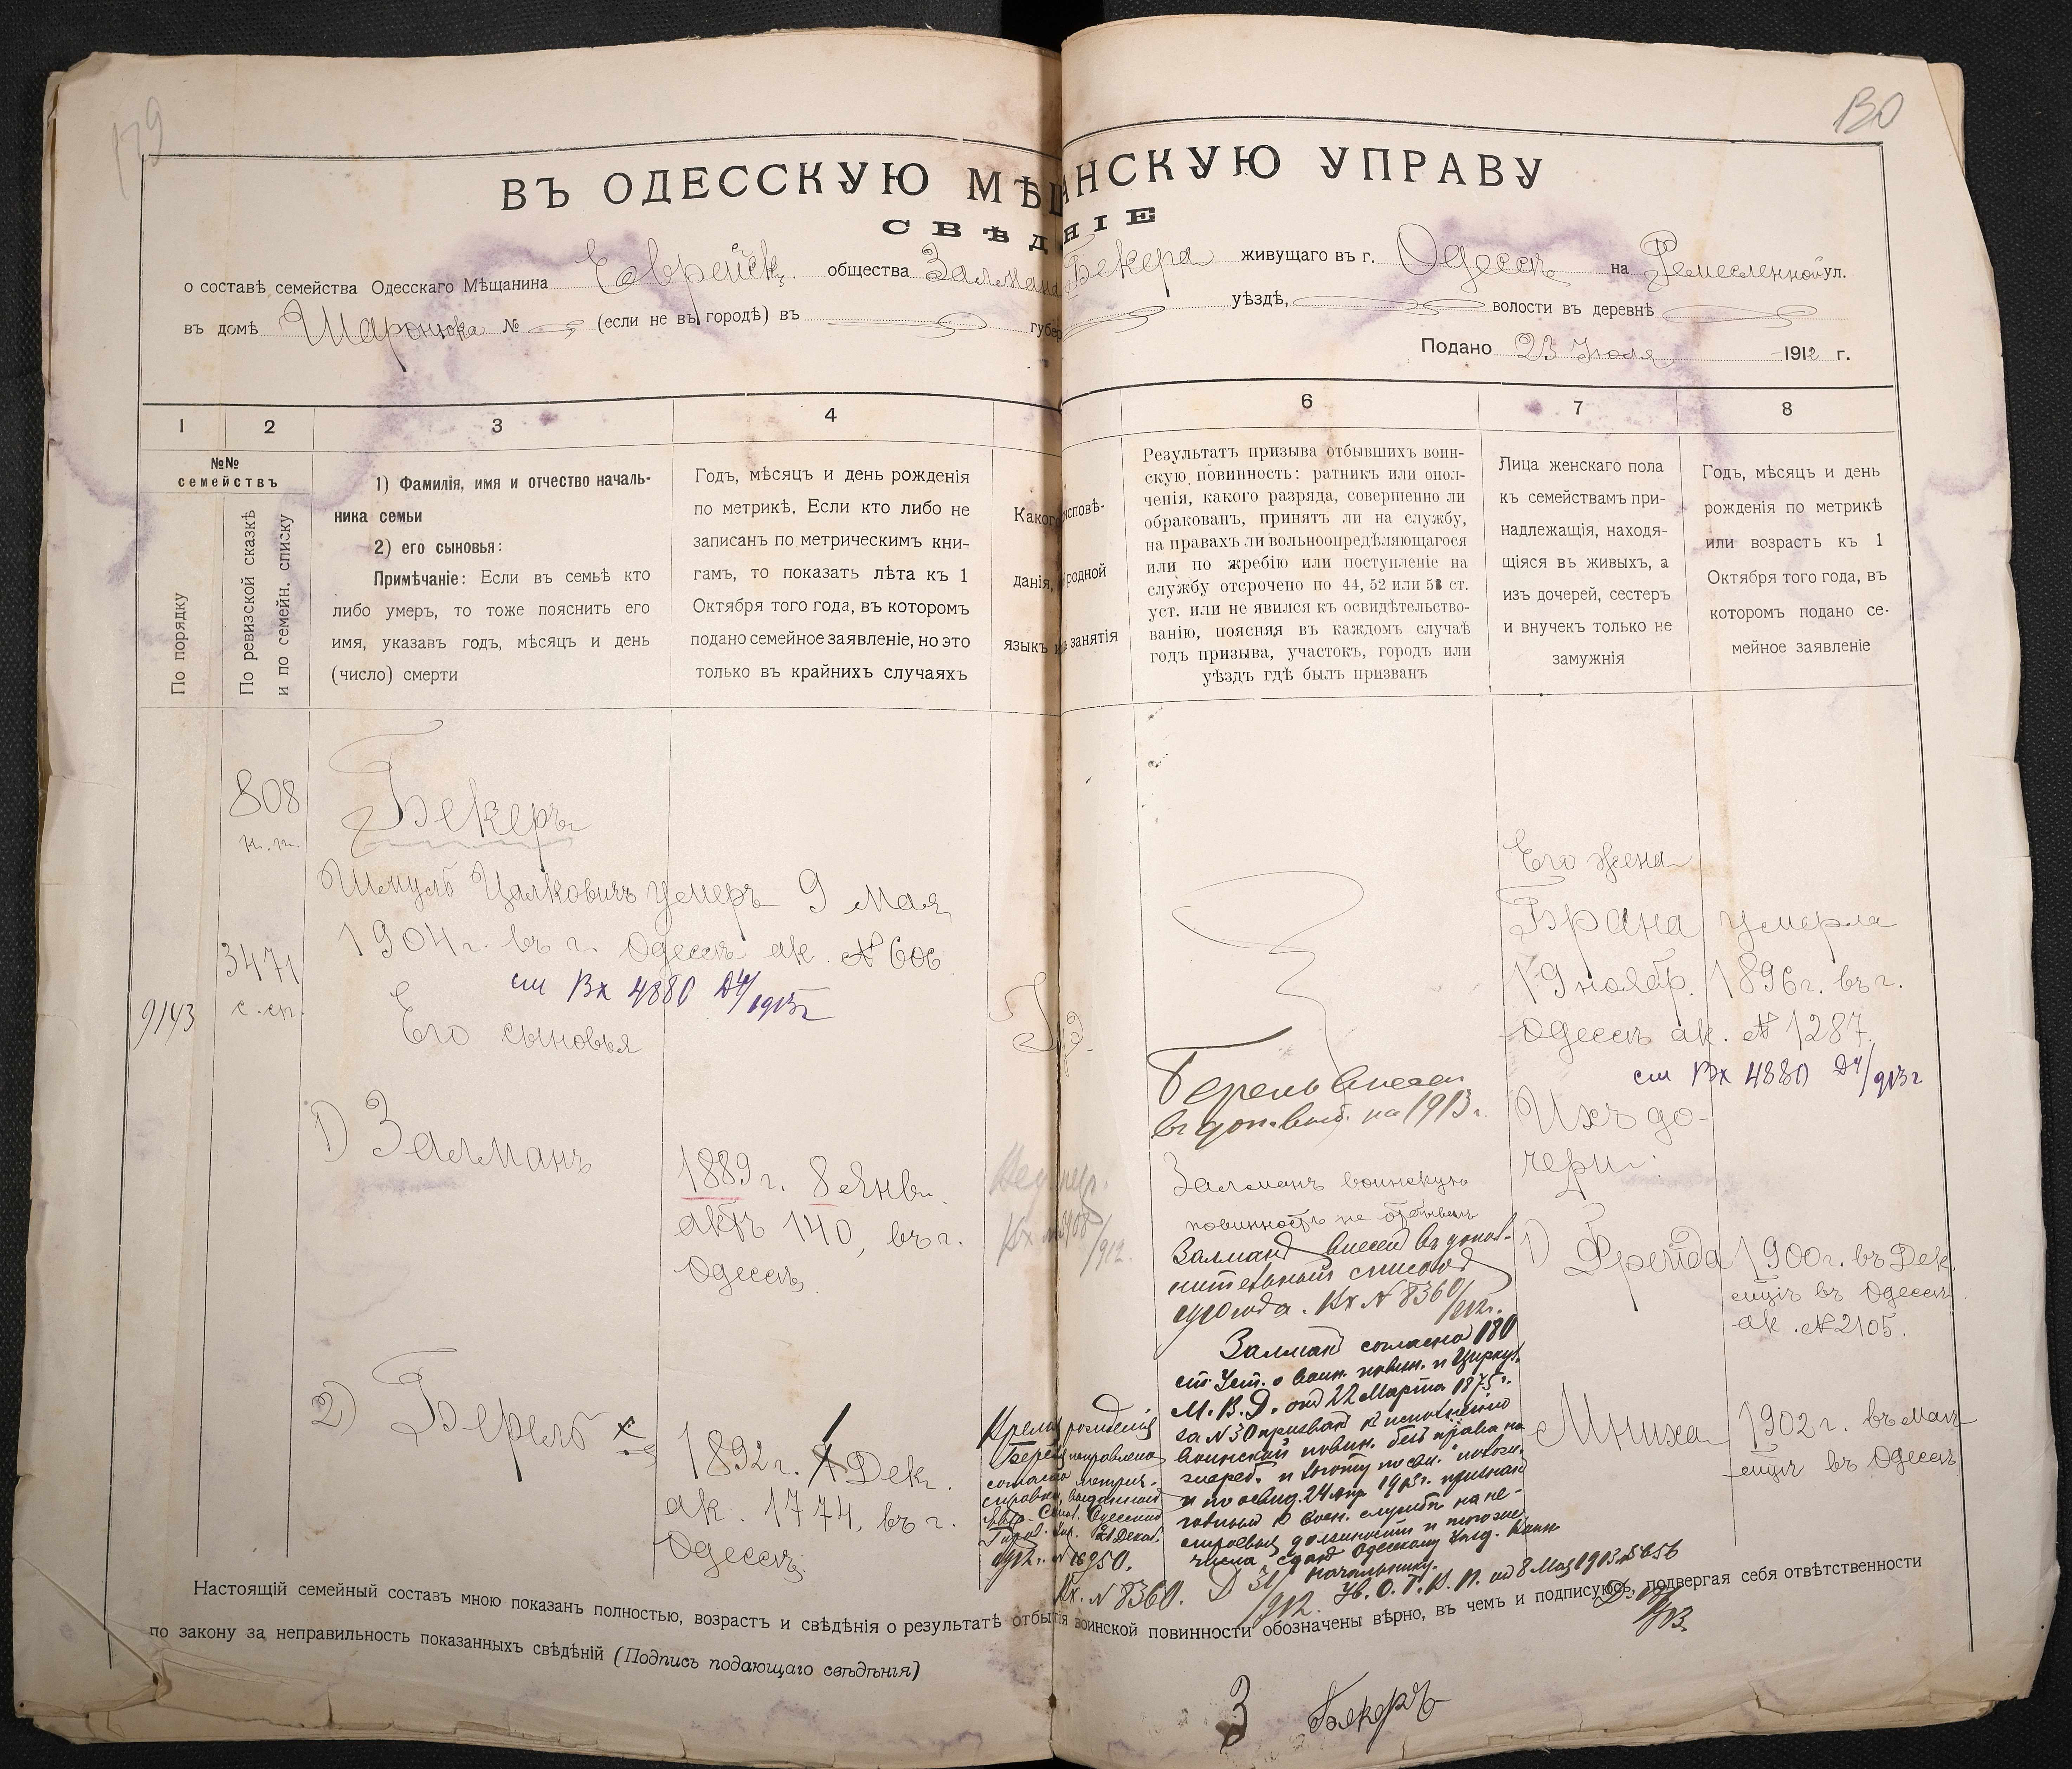 179
130
ВЪ ОДЕССКУЮ МѢЩАНСКУЮ УПРАВУ
СВѢДѢНІЕ
о составѣ семейства Одесскаго Мѣщанина Еврейск. общества Залмана Бекера живущаго въ г. Одессѣ на Ремесленной ул.
въ домѣ № (если не въ городѣ) въ губер уѣздѣ, волости въ деревнѣ
Подано 23 Июля 1912 г.
1
2
3
4
6
7
8
№№ семействъ
По порядку
По ревизской сказкѣ и по семейн. списку
1) Фамилія, имя и отчество началь-
ника семьи
2) его сыновья:
Примѣчаніе: Если въ семьѣ кто
либо умеръ, то тоже пояснить его
имя, указавъ годъ, мѣсяцъ и день
(число) смерти
Годъ, мѣсяцъ и день рожденія
по метрикѣ. Если кто либо не
записанъ по метрическимъ кни-
гамъ, то показать лѣта къ 1
Октября того года, въ которомъ
подано семейное заявленіе, но это
только въ крайнихъ случаяхъ
Какого исповѣ-
данія, родной
языкъ и занятія
Результатъ призыва отбывшихъ воин-
скую повинность: ратникъ или опол-
ченія, какого разряда, совершенно ли
обракованъ, принятъ ли на службу,
на правахъ ли вольноопредѣляющагося
или по жребію или поступленіе на
службу отсрочено по 44, 52 или 53 ст.
уст. или не явился къ освидѣтельство-
ванію, поясняя въ каждомъ случаѣ
годъ призыва, участокъ, городъ или
уѣздъ гдѣ былъ призванъ
Лица женскаго пола
къ семействамъ при-
надлежащія, находя-
щіяся въ живыхъ, а
изъ дочерей, сестеръ
и внучекъ только не
замужнія
Годъ, мѣсяцъ и день
рожденія по метрикѣ
или возрастъ къ 1
Октября того года, въ
которомъ подано се-
мейное заявленіе
808
н.п.
3471
с.сп.
9143
Бекеръ
Шмуль Цалковичъ умеръ 9 мая
1904 г. въ г. Одессѣ ак. № 606
см Вх 4880 Д4/1913 г
Его сыновья
1) Залманъ
1889 г. 8 Янв.
актъ 140, въ г.
Одессѣ
2) Берель
1892 г. 1 Дек.
ак. 1774, въ г.
Одессѣ
Вх №
/912.
Время рожденія
Береля исправлено
согласно метрич.
справки, выданной
Одесской
Гор. Упр. Декаб.
1912 г. № 16950.
Вх. № 8360. Д 31/912.
Берель внесен
в доп. выб. на 1913 г.
Залманъ воинскую
повинность не отбывалъ
Залман внесен в допол-
нительный список
сего года. Вх № 8360/912 г.
Залман согласно 180
ст. Уст. о воин. повин. и Циркул.
М. В. Д. от 22 Марта 1875 г.
за № 30 призван к исполнению
воинской повин. без права на
жереб. и льготу по сем. полож.
и по освид. 24 Апр 1913 г. признан
годным к воен. службѣ на не-
строевыя должности и того же
числа сдан Одесскому Уѣзд. Воин
Начальнику.
Ув. О. Г. В. П. от 8 Мая 1913 № 5656
Его жена
Брана умерла
19 ноябр. 1896 г. въ г.
Одессѣ ак. № 1287.
см Вх 4880 Д4/913 г
Ихъ до-
чери:
1) Фрейда 1900 г. въ Дек.
мцѣ въ Одессѣ
ак. № 2105.
Мниха 1902 г. въ маѣ
мцѣ въ Одессѣ
Настоящій семейный составъ мною показанъ полностью, возрастъ и свѣдѣнія о результатѣ отбытія воинской повинности обозначены вѣрно, въ чемъ и подписуюсь, подвергая себя отвѣтственности
по закону за неправильность показанныхъ свѣдѣній (Подпись подающаго свѣдѣнія)
З Бекеръ